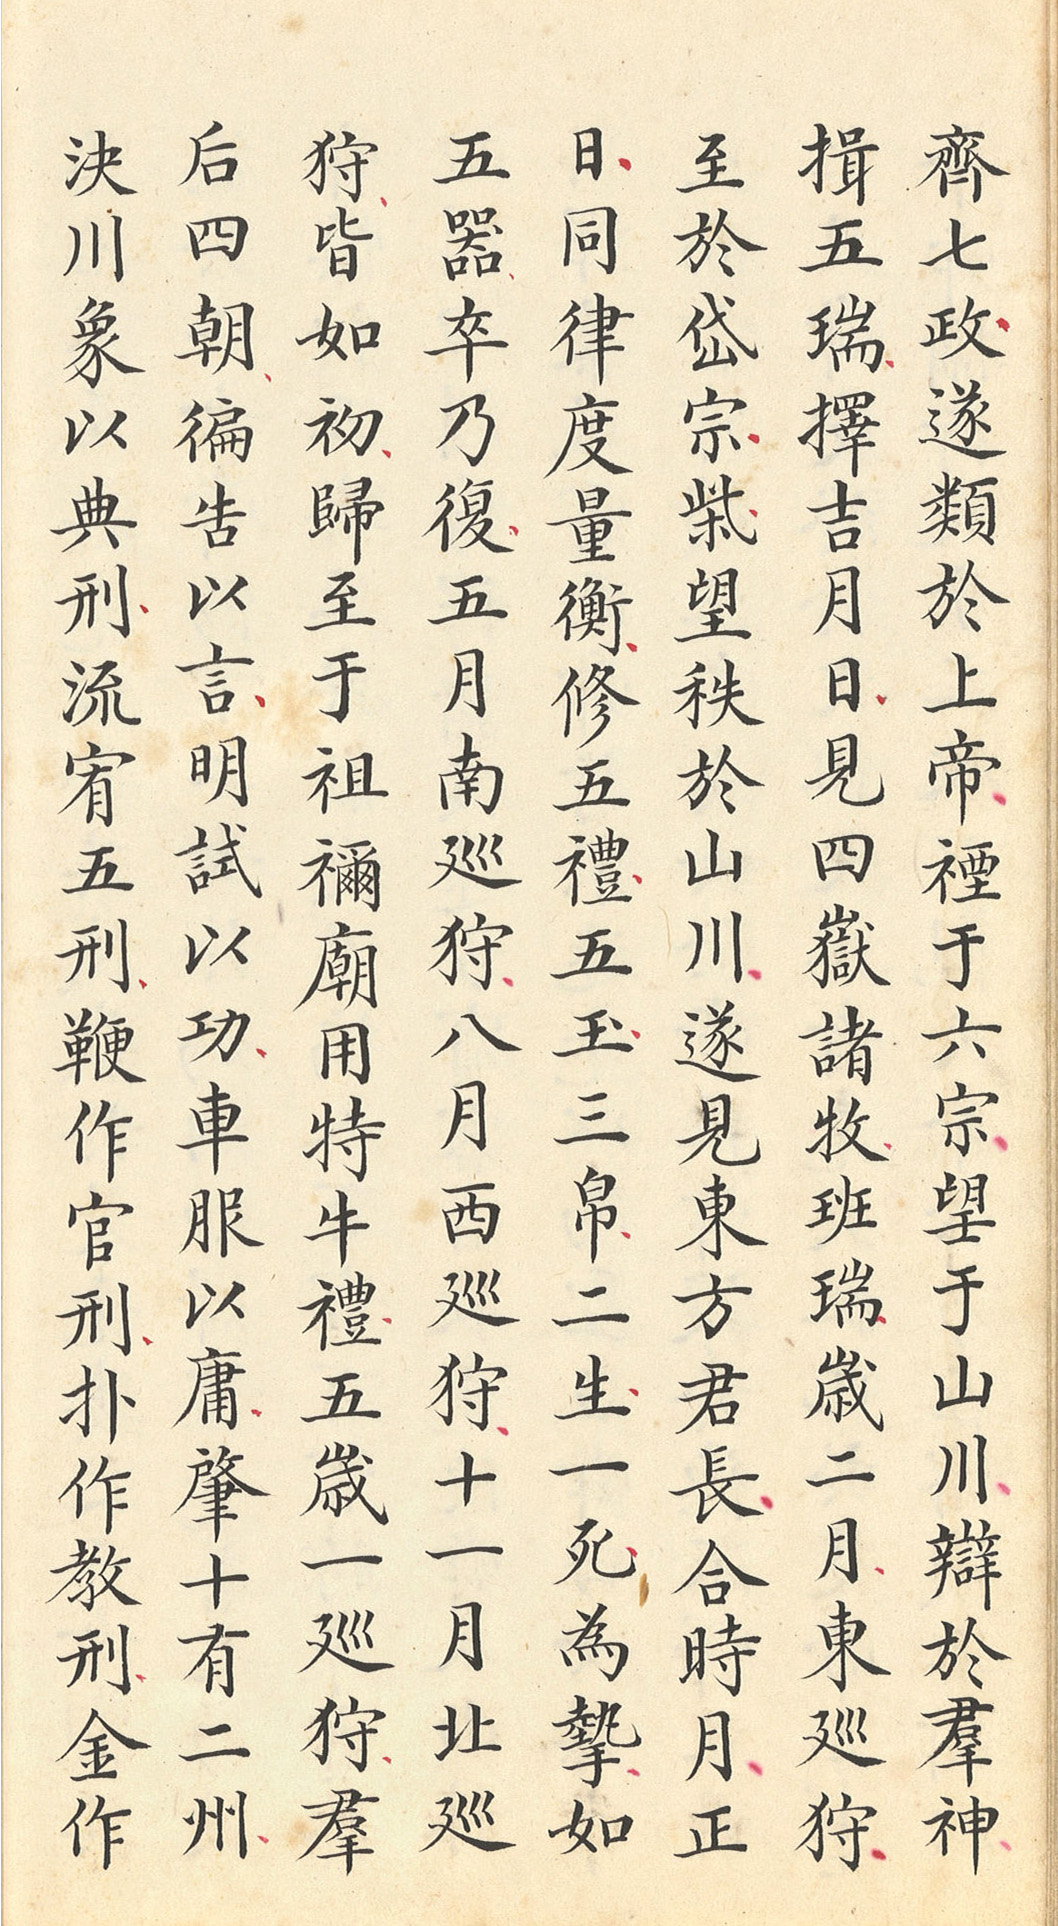 齊七政遂類於上帝禋于六宗望于山川辯於羣神
揖五瑞擇吉月日見四嶽諸牧班瑞歲二月東廵狩
至於岱宗柴望秩於山川遂見東方君長合時月正
日同律度量衡修五禮五玉三帛二生一死為摯如
五器卒乃復五月南廵狩八月西廵狩十一月北廵
狩皆如初歸至于祖禰廟用特牛禮五歲一廵狩羣
后四朝徧告以言明試以功車服以庸肇十有二州
決川象以典刑流宥五刑鞭作官刑扑作教刑金作